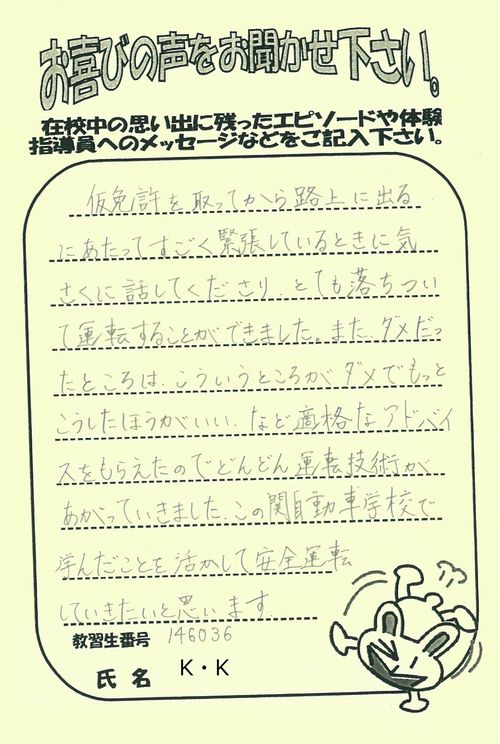 お喜びの声をお聞かせ下さい。
在校中の思い出に残ったエピソードや体験
指導員へのメッセージなどをご記入下さい。
仮免許を取ってから路上に出る
にあたってすごく緊張しているときに気
さくに話してくださり、とても落ちつい
て運転することができました。また、ダメだっ
たところは、こういうところがダメでもっと
こうしたほうがいい、など適格なアドバイ
スをもらえたのでどんどん運転技術が
あがっていきました。この関自動車学校で
学んだことを活かして安全運転
していきたいと思います。
教習生番号 146036
氏名 K・K